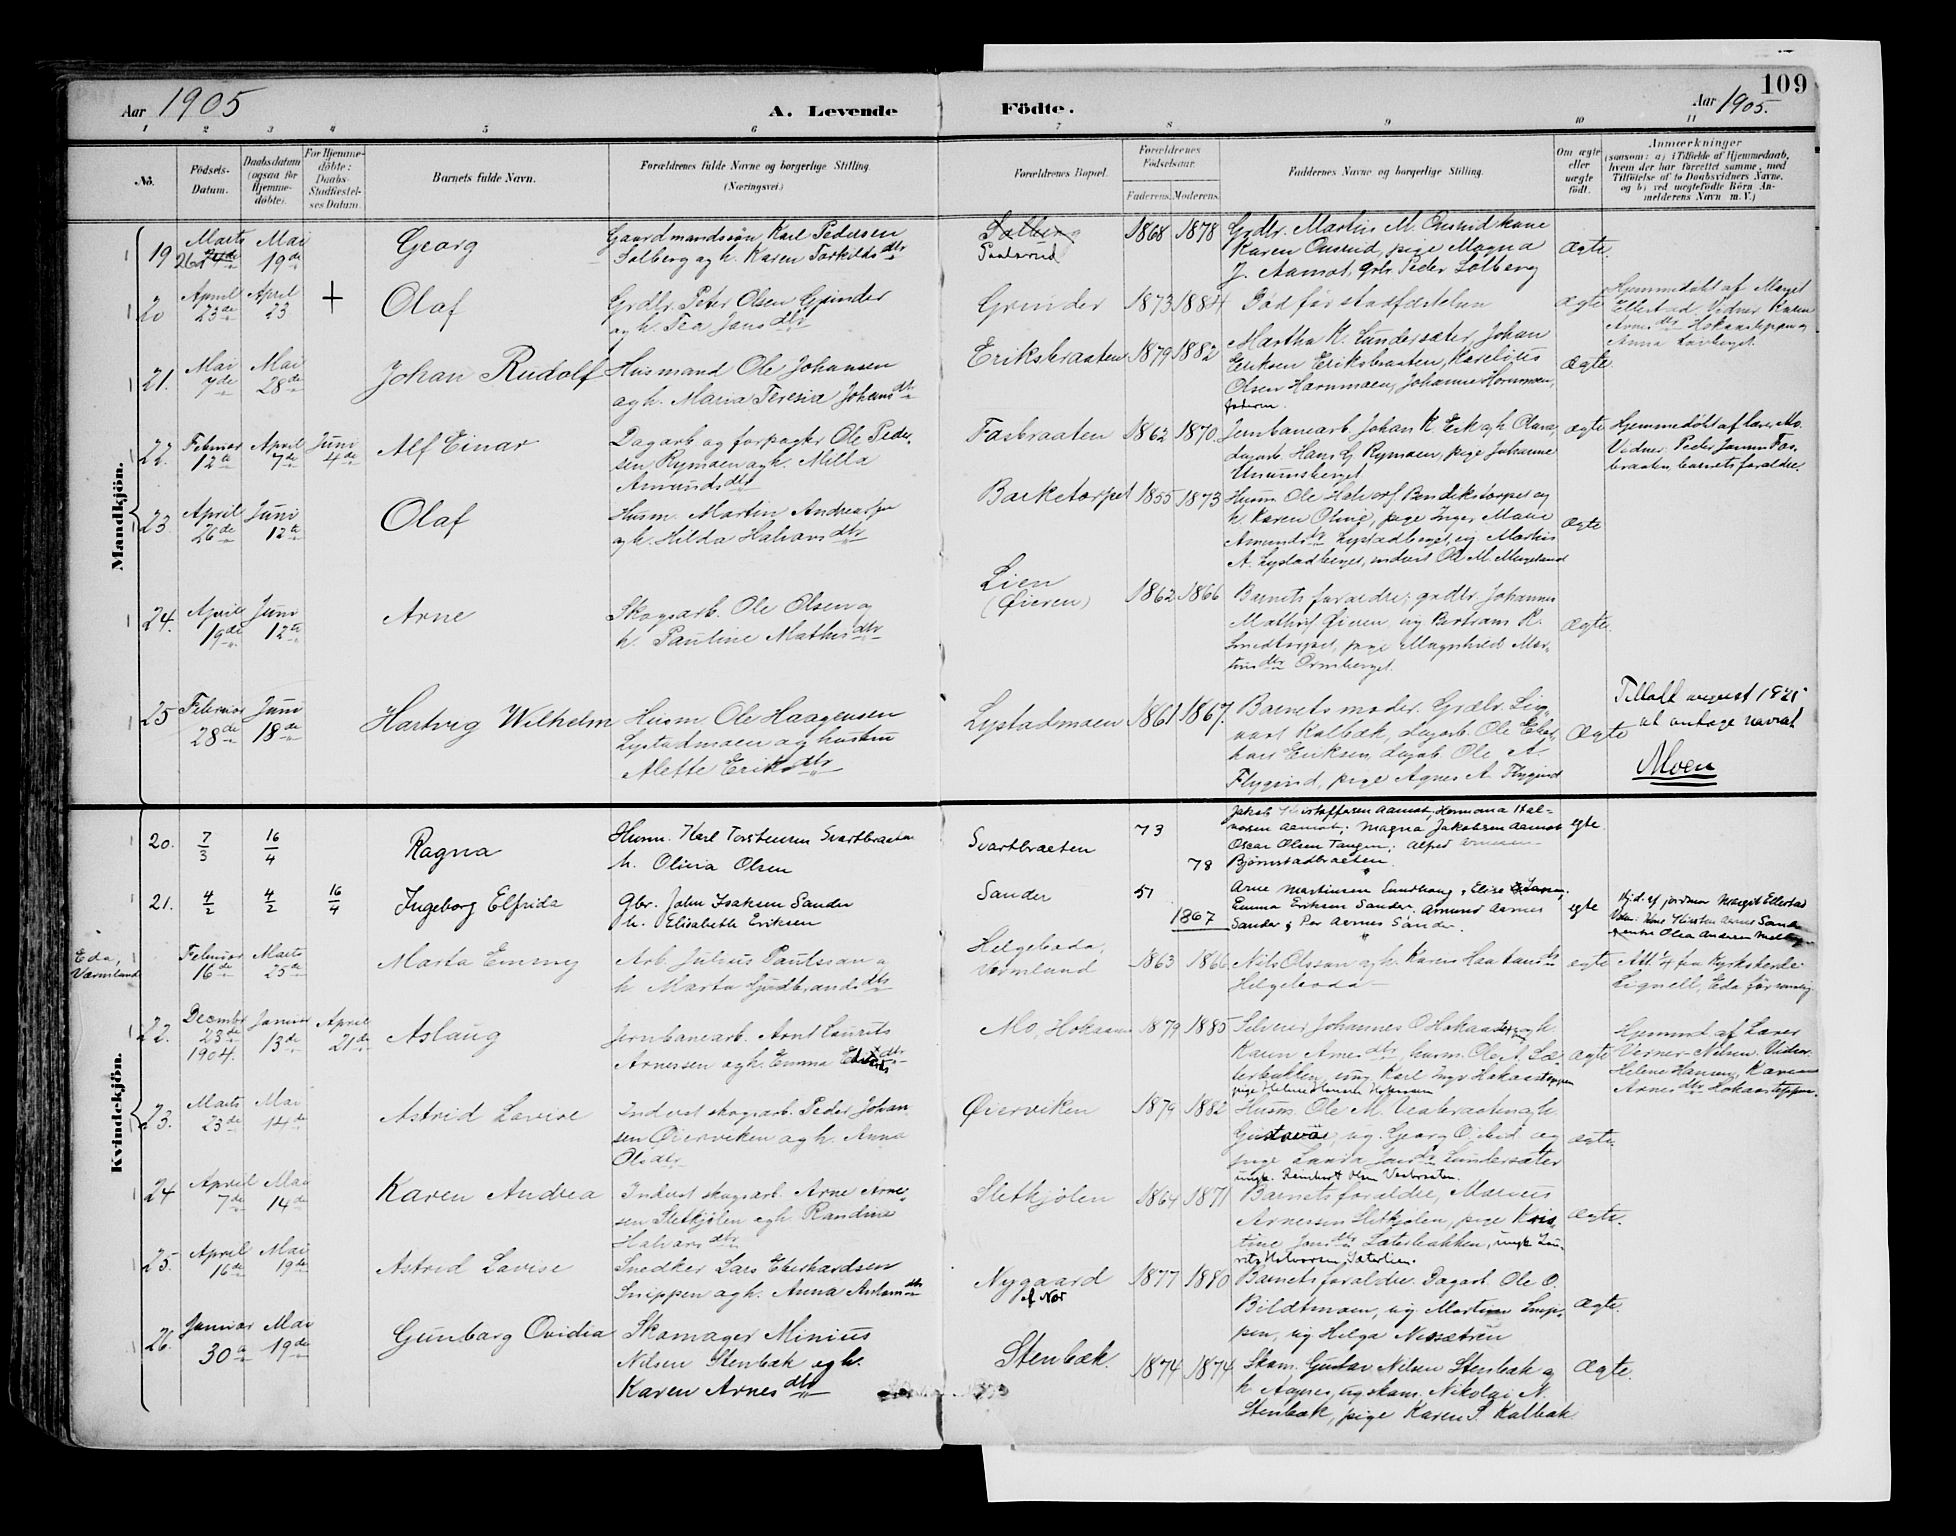 109
Aar 1905 A. Levende Födte. Aar 1905.
1 2 3 4 5 6 7 8 9 10 11
No. Födsels-Datum. Daabsdatum (ogsaa for Hjemmedöbte). For Hjemmedöbte: Daabs-Stadfæstelses Datum. Barnets fulde Navn. Forældrenes fulde Navne og borgerlige Stilling. (Næringsvei.) Forældrenes Bopæl. Forældrenes Födselsaar. Faderens. Moderens. Faddernes Navne og borgerlige Stilling. Om ægte eller uægte födt. Anmærkninger (saasom: a) i Tilfælde af Hjemmedaab, hvem der har forrettet samme, med Tilföielse af to Daabsvidners Navne, og b) ved uægtefödte Börn Anmelderens Navn m. V.)
Mandkjön.
19 Marts 26de Mai 19de Georg
Gaardmandssön Karl Pedersen
Solberg og h. Karen Torkildsdtr
Solberg
1868 1878
Grdbr. Martius M. Onsrud kone
Karen Onsrud, pige Magna
J. Aamot, grbr. Peder Solberg
ægte
20 April 23de April 23 + Olaf
Grdbr. Peter Olsen Grinder
og h. Tea Jonsdtr
Grinder 1873 1884 Död för stadfæstelsen ægte
Hjemmedöbt af Marget
Ellestad. Vidner Karen
Arnesdtr Hokaasteppen og
Anna Lövberget
21. Mai 7de Mai 28de Johan Rudolf
Husmand Ole Johansen
og h. Maria Teresia Johansdtr
Eriksbraaten 1879 1882
Martha K. Lundersæter, Johan
Eriksen Eriksbraaten, Karelius
Olsen Hornmoen, Johanne Hornmoen,
faderen.
ægte
22. Februar 12te April 7de Juni 4de Alf Einar
Dagarb. og forpagter Ole Peder-
sen Rymoen og h. Milla
Amundsdtr
Fasbraaten 1862 1870.
Jernbanearb. Johan K. Eek og h. Olava,
dagarb. Hans G. Rymoen, pige Johanne
ægte
Hjemmedöbt af lærer Mo.
Vidner: Peder Jansen Fas-
braaten, barnets forældre.
23 April 26de Juni 12te Olaf
Husm. Martin Andreassen
og h. Hilda Halvorsdtr
Barketorpet 1855 1873
Husm. Ole Halvors. Bendikstorpet og
h. Karen Oline, pige Inger Marie
Amundsdtr Lystadberget, ug. Martius
A. Lystadberget, inderst Ole M. Mageland
ægte
24. April 19de Juni 12te Arne
Skogsarb. Ole Olsen og
h. Pauline Mathisdtr
Lien
(Öieren)
1862 1866
Barnets forældre; grdbr. Johannes
Mathis. Öieren, ug Bertram R.
Smedtorpet, pige Magnhild Mar-
tinsdtr Ormberget.
Ægte.
25 Februar 28de Juni 18de Hartvig Wilhelm
Husm. Ole Haagensen
Lystadmoen og hustru
Alette Eriksdtr
Lystadmoen 1861 1867.
Barnets moder. Grdbr. Sig-
vart Kalbæk, dagarb. Ole Eber-
hart Eriksen, dagarb. Ole A.
Flygind, pige Agnes A. Flygind
Ægte
Tillatt august 1925
at antage navnet
Moen
Kvindekjön.
20. 7/3 16/4 Ragna
Husm. Karl Torstensen Svartbraaten
h. Olivia Olsen
Svartbraaten 73 78
Jakob Kristoffersen Aamot, Hermana Hal-
vorsen Aamot; Magna Jakobsen Aamot
Oscar Olsen Tangen; Alfred Arnesen
Bjørnstadbraaten.
egte
21. 4/2 4/2 16/4 Ingeborg Elfrida
Gbr. John Isaksen Sander
h. Elisabeth Eriksen
Sander 51 1867
Arne Martinsen Lundhaug, Elise Larsen,
Emma Eriksen Sander. Amund Arnes
Sander & Per Arnes Sander.
egte
Hj.d. af jordmor Margit Ellestad
Eda, Värmland
Februar 16de Marts 25de Marta Emmy
Arb. Julius Paulsson og
h. Marta Gudbrandsdtr
Helgeboda,
Vermland
1863 1866
Nils Olsson og h. Karen Haatansdtr
Helgeboda
egte
Att. 1/4 fra Kyrkoherde
Lignell, Eda församling
22. December 23de 1904. Januar 13de April 21de Aslaug
Jernbanearb. Arnt Laurits
Arnessen og h. Emma Edvardsdtr
Mo, Hokaasen 1879 1885
Selveier Johannes O. Hokaasteppen og h.
Karen Arnesdtr, husm. Ole A. Sæ-
terbakken, ung. Karl Ingv. Hokaasteppen
ægte
Hjemmd. af Lærer
Verner-Nielsen. Vidner
Helene Hansen, Karen
Arnesdtr Hokaasteppen.
23. Marts 23de Mai 14de Astrid Lovise
Inderst skogsarb. Peder Johan-
sen Öierviken og h. Anna
Olsdtr
Öierviken 1879 1882
Husm. Ole M. Vestbraaten og h.
Gustava, ug. Georg O. Eid og
pige Laura Jonsdtr Lundersæter
ungk. Reinhart Olsen Vestbraaten.
ægte.
24 April 7de Mai 14de Karen Andrea
Inderst skogsarb. Arne Arne-
sen Sletkjölen og h. Randine
Halvorsdtr
Sletkjölen 1864 1871
Barnets forældre, Marius
Arnessen Sletkjölen, pige Kris-
tine Jonsdtr Sæterbakken, ungk. Lau-
rits Halvorsen Sæterlien.
Ægte.
25. April 16de Mai 19de Astrid Lovise
Snedker Lars Eberhardsen
Snippen og h. Anna Antonsdtr
Nygaard
af Nor
1877 1880
Barnets forældre. Dagarb. Ole O.
Bildtmoen, ug. Martin Snip-
pen, ug Helga Nessætren
ægte.
26. Januar 30te Mai 19de Gunborg Ovidia
Skomager Minius
Nilsen Stenbæk og h.
Karen Arnesdtr
Stenbæk. 1874 1874
Skom. Gustav Nilsen Stenbæk og
h. Agnes, ug skom. Nikolai N.
Stenbæk, pige Karen S. Kalbæk
Ægte.